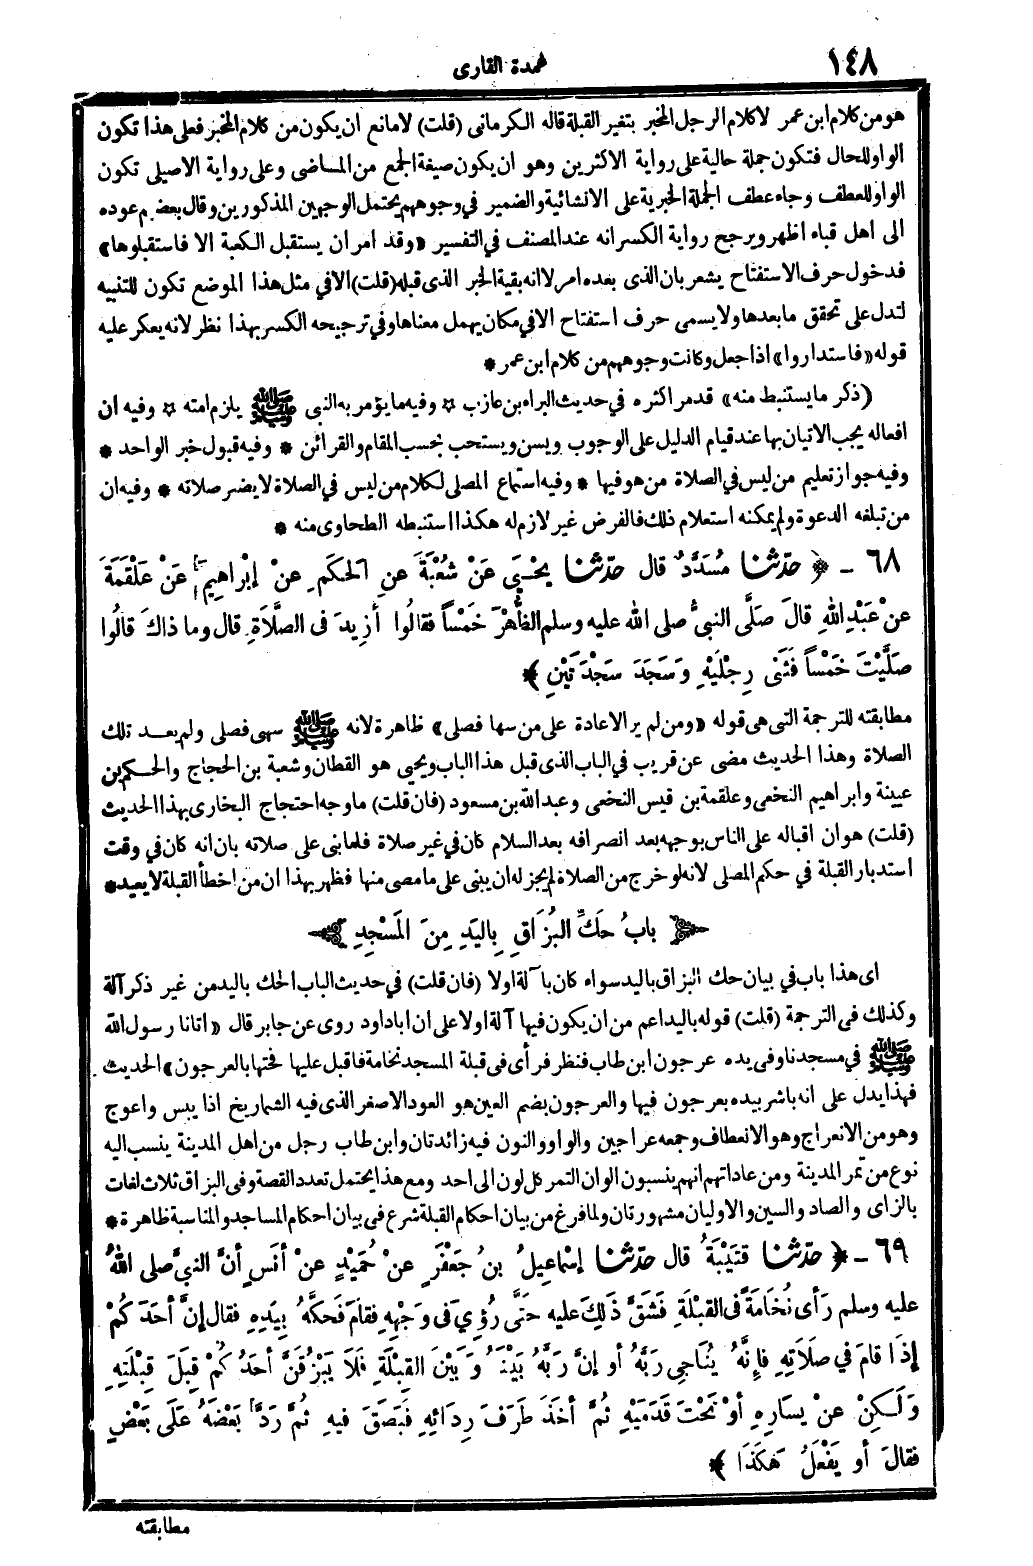 ١٤٨
عمدة القارى
هو من كلام ابن عمر لا كلام الرجل المخبر بتغير القبلة قاله الكرمانى (قلت) لا مانع ان يكون من كلام المخبر فعلى هذا تكون
الواو للحال فتكون جملة حالية على رواية الاكثرين وهو ان يكون صيغة الجمع من الماضى وعلى رواية الاصيلى تكون
الواو للعطف وجاء عطف الجملة الخبرية على الانشائية والضمير في وجوههم يحتمل الوجهين المذكورين وقال بعضهم عوده
الى اهل قباء اظهر ويرجح رواية الكسر انه عند المصنف في التفسير «وقد امر ان يستقبل الكعبة الا فاستقبلوها»
فدخول حرف الاستفتاح يشعر بان الذى بعده امر لا انه بقية الخبر الذى قبله (قلت) الا في مثل هذا الموضع تكون للتنبيه
لتدل على تحقق ما بعدها ولا يسمى حرف استفتاح الا في مكان يهمل معناها وفي ترجيحه الكسر بهذا نظر لانه يعكر عليه
قوله «فاستداروا» اذا جعل وكانت وجوههم من كلام ابن عمر *
(ذكر ما يستنبط منه» قد مر اكثره في حديث البراء بن عازب * وفيه ما يؤمر به النبى ﷺ يلزم امته * وفيه ان
افعاله يجب الاتيان بها عند قيام الدليل على الوجوب ويسن ويستحب بحسب المقام والقرائن * وفيه قبول خبر الواحد *
وفيه جواز تعليم من ليس في الصلاة من هو فيها * وفيه استماع المصلى لكلام من ليس في الصلاة لا يضر صلاته * وفيه ان
من تبلغه الدعوة ولم يمكنه استعلام ذلك فالفرض غير لازم له هكذا استنبطه الطحاوى منه *
٦٨ - ﴿ حَدَّثَنَا مُسَدَّدٌ قال حَدَّثَنَا يَحْيَى عَنْ شُعْبَةَ عَنِ الحَكَمِ عنْ إبْراهِيمَ عَنْ عَلْقَمَةَ
عنْ عَبْدِ اللهِ قالَ صَلَّى النبيُّ صلى الله عليه وسلم الظُّهْرَ خَمْساً فقالُوا أزِيدَ فى الصَّلَاةِ قال وما ذاكَ قالُوا
صَلَّيْتَ خَمْساً فَثَنَى رِجْلَيْهِ وَسَجَدَ سَجْدَتَيْنِ ﴾
مطابقته للترجمة التى هى قوله «ومن لم ير الاعادة على من سها فصلى» ظاهرة لانه ﷺ سهى فصلى ولم يعد تلك
الصلاة وهذا الحديث مضى عن قريب في الباب الذى قبل هذا الباب ويحيى هو القطان وشعبة بن الحجاج والحكم بن
عيينة وابراهيم النخعى وعلقمة بن قيس النخعى وعبد الله بن مسعود (فان قلت) ما وجه احتجاج البخارى بهذا الحديث
(قلت) هو ان اقباله على الناس بوجهه بعد انصرافه بعد السلام كان في غير صلاة فلما بنى على صلاته بان انه كان في وقت
استدبار القبلة في حكم المصلى لانه لو خرج من الصلاة لم يجز له ان يبنى على ما مضى منها فظهر بهذا ان من اخطأ القبلة لا يعيد *
بابُ حَكِّ البُزَاقِ بِاليَدِ مِنَ المَسْجِدِ
اى هذا باب في بيان حك البزاق باليد سواء كان بآلة اولا (فان قلت) في حديث الباب الحك باليد من غير ذكر آلة
وكذلك فى الترجمة (قلت) قوله باليد اعم من ان يكون فيها آلة اولا على ان ابا داود روى عن جابر قال « اتانا رسول الله
ﷺ في مسجدنا وفى يده عرجون ابن طاب فنظر فرأى فى قبلة المسجد نخامة فاقبل عليها فحتها بالعرجون» الحديث
فهذا يدل على انه باشر بيده بعرجون فيها والعرجون بضم العين هو العود الاصفر الذى فيه الشماريخ اذا يبس واعوج
وهو من الانعراج وهو الانعطاف وجمعه عراجين والواو والنون فيه زائدتان وابن طاب رجل من اهل المدينة ينسب اليه
نوع من تمر المدينة ومن عاداتهم انهم ينسبون الوان التمر كل لون الى احد ومع هذا يحتمل تعدد القصة وفى البزاق ثلاث لغات
بالزاى والصاد والسين والاوليان مشهورتان ولما فرغ من بيان احكام القبلة شرع فى بيان احكام المساجد والمناسبة ظاهرة *
٦٩ - ﴿ حَدَّثَنَا قُتَيْبَةُ قال حَدَّثَنَا إسْمَاعِيلُ بنُ جَعْفَرٍ عنْ حُمَيْدٍ عنْ أنَسٍ أنَّ النبيَّ صلى اللهُ
عليه وسلم رَأى نُخَامَةً فى القِبْلَةِ فَشَقَّ ذَلِكَ عليه حَتَّى رُؤِيَ فى وَجْهِهِ فقامَ فَحَكَّهُ بِيَدِهِ فقال إنَّ أحَدَكُمْ
إذَا قامَ في صلَاتِهِ فإنَّهُ يُنَاجِى رَبَّهُ أو إنَّ رَبَّهُ بَيْنَهُ وَبَيْنَ القِبْلَةِ فَلَا يَبْزُقَنَّ أحَدُكُمْ قِبَلَ قِبْلَتِهِ
وَلَكِنْ عنْ يسَارِهِ أوْ تَحْتَ قَدَمَيْهِ ثُمَّ أخَذَ طَرَفَ رِدَائِهِ فَبَصَقَ فيهِ ثُمَّ رَدَّ بَعْضَهُ عَلَى بَعْضٍ
فقالَ أو يَفْعَلُ هَكَذَا ﴾
مطابقته